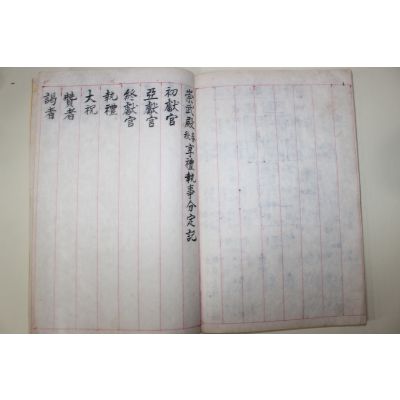 崇武殿春秋享禮執事分定記
初獻官
亞獻官
終獻官
執禮
大祝
贊者
謁者